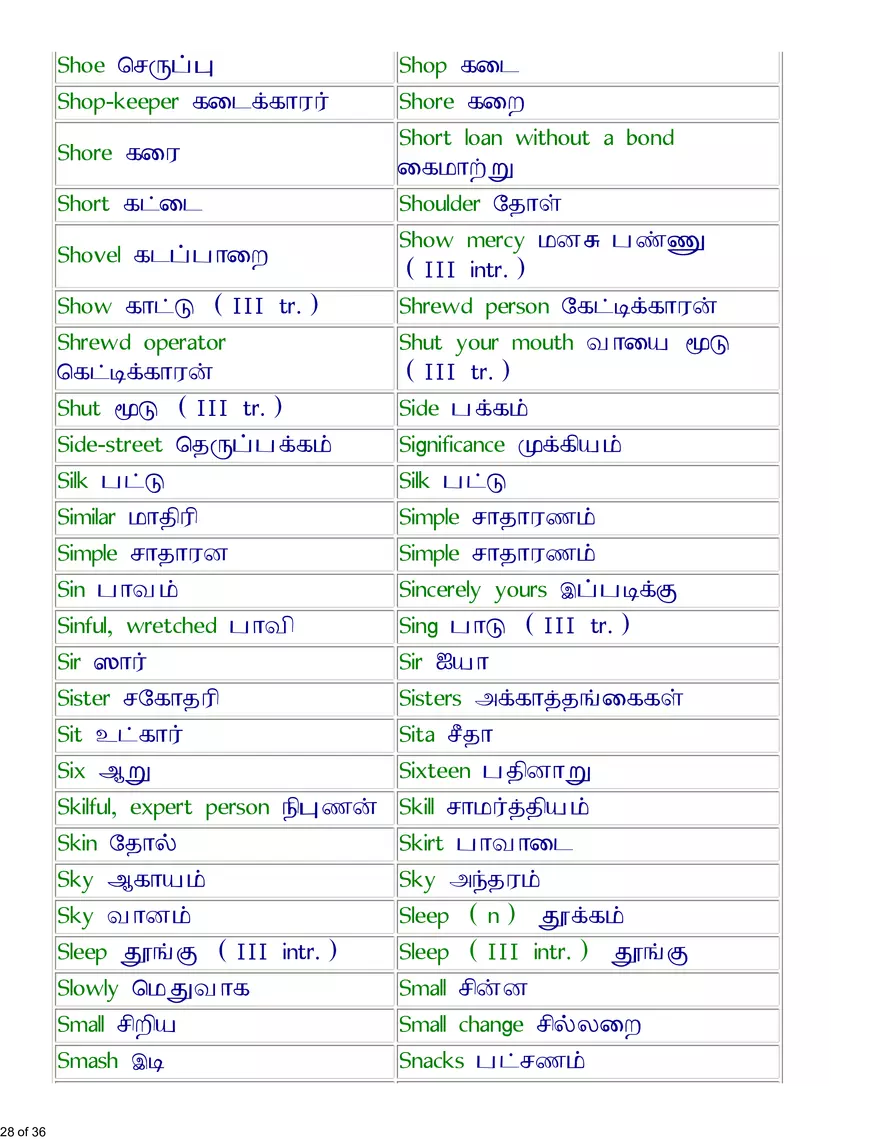 Shoe செருப்பு
Shop கடை
Shop-keeper கடைக்காரர்
Shore கறை
Shore கரை
Short loan without a bond
கைமாற்று
Short கட்டை
Shoulder தோள்
Shovel கடப்பாறை
Show mercy மனசு பண்ணு
( III intr. )
Show காட்டு ( III tr. )
Shrewd person கேட்டிக்காரன்
Shrewd operator
கெட்டிக்காரன்
Shut your mouth வாயை மூடு
( III tr. )
Shut மூடு ( III tr. )
Side பக்கம்
Side-street தெருப்பக்கம்
Significance முக்கியம்
Silk பட்டு
Silk பட்டு
Similar மாதிரி
Simple சாதாரணம்
Simple சாதாரன
Simple சாதாரணம்
Sin பாவம்
Sincerely yours இப்படிக்கு
Sinful, wretched பாவி
Sing பாடு ( III tr. )
Sir ஸார்
Sir ஐயா
Sister சகோதரி
Sisters அக்காத்தங்கைகள்
Sit உட்கார்
Sita சீதா
Six ஆறு
Sixteen பதினாறு
Skilful, expert person நிபுணன்
Skill சாமர்த்தியம்
Skin தோல்
Skirt பாவாடை
Sky ஆகாயம்
Sky அந்தரம்
Sky வானம்
Sleep ( n ) தூக்கம்
Sleep தூங்கு ( III intr. )
Sleep ( III intr. ) தூங்கு
Slowly மெதுவாக
Small சின்ன
Small சிறிய
Small change சில்லறை
Smash இடி
Snacks பட்சணம்
28 of 36